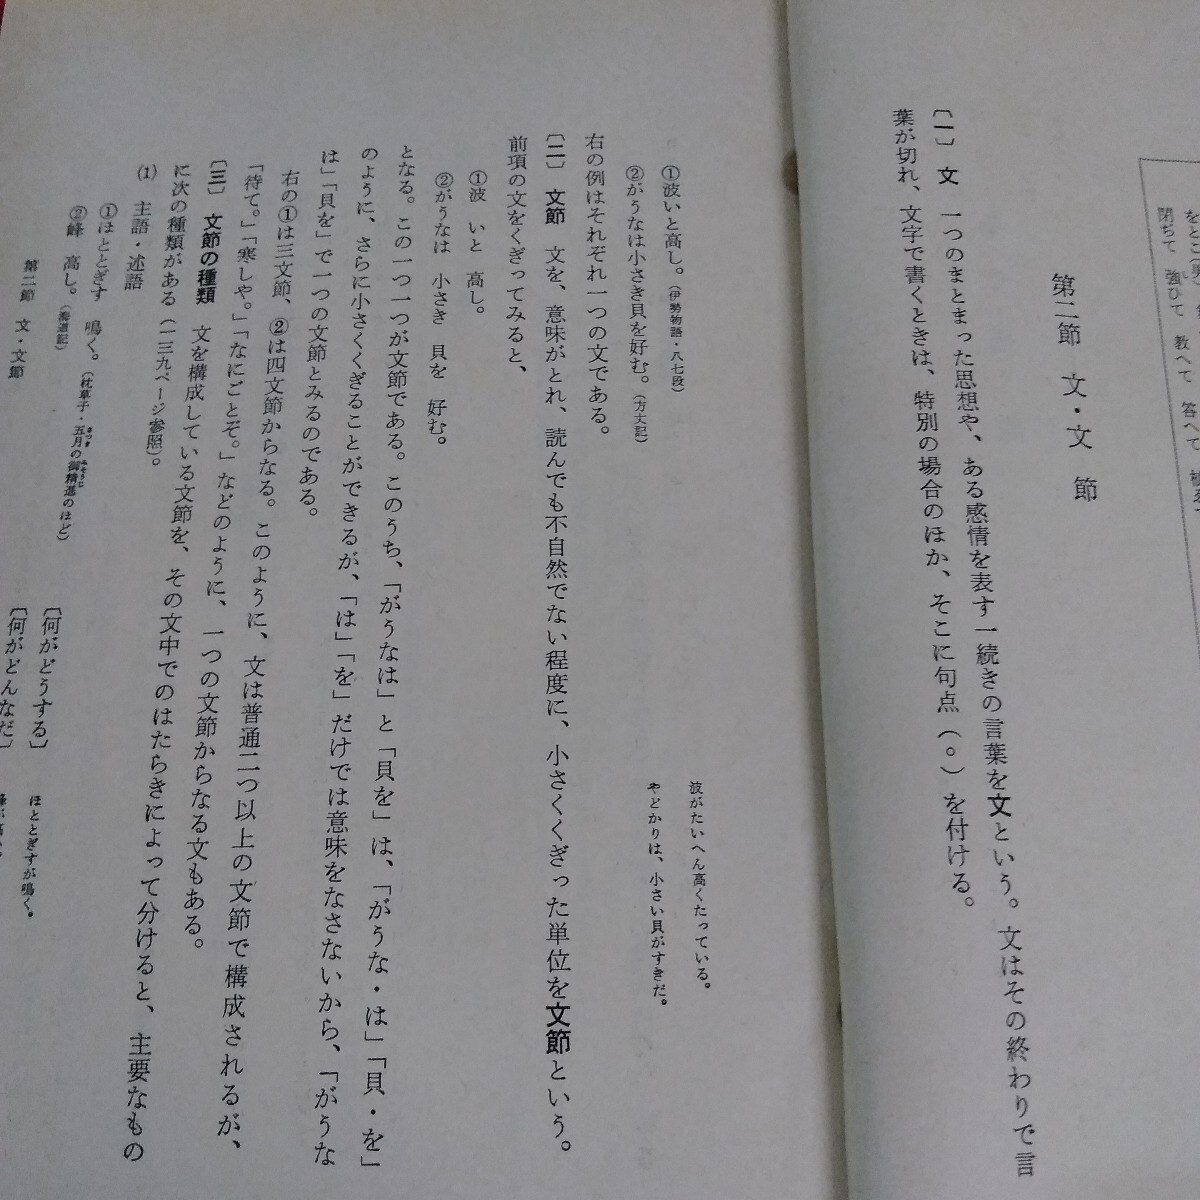 をとこ(男)
閉ぢて　強ひて　教へて　答へて
第二節　文・文節
〔一〕　文　一つのまとまった思想や、ある感情を表す一続きの言葉を文という。文はその終わりで言
葉が切れ、文字で書くときは、特別の場合のほか、そこに句点(。)を付ける。
①波いと高し。(伊勢物語・八七段)　波がたいへん高くたっている。
②がうなは小さき貝を好む。(方丈記)　やどかりは、小さい貝がすきだ。
右の例はそれぞれ一つの文である。
〔二〕　文節　文を、意味がとれ、読んでも不自然でない程度に、小さくくぎった単位を文節という。
前項の文をくぎってみると、
①波　いと　高し。
②がうなは　小さき　貝を　好む。
となる。この一つ一つが文節である。このうち、「がうなは」と「貝を」は、「がうな・は」「貝・を」
のように、さらに小さくくぎることができるが、「は」「を」だけでは意味をなさないから、「がうな
は」「貝を」で一つの文節とみるのである。
右の①は三文節、②は四文節からなる。このように、文は普通二つ以上の文節で構成されるが、
「待て。」「寒しや。」「なにごとぞ。」などのように、一つの文節からなる文もある。
〔三〕　文節の種類　文を構成している文節を、その文中でのはたらきによって分けると、主要なもの
に次の種類がある(一三九ページ参照)。
(1)　主語・述語
①ほととぎす　鳴く。(枕草子・五月の御精進のほど)　〔何がどうする〕　ほととぎすが鳴く。
②峰　高し。(海道記)　〔何がどんなだ〕
第二節　文・文節